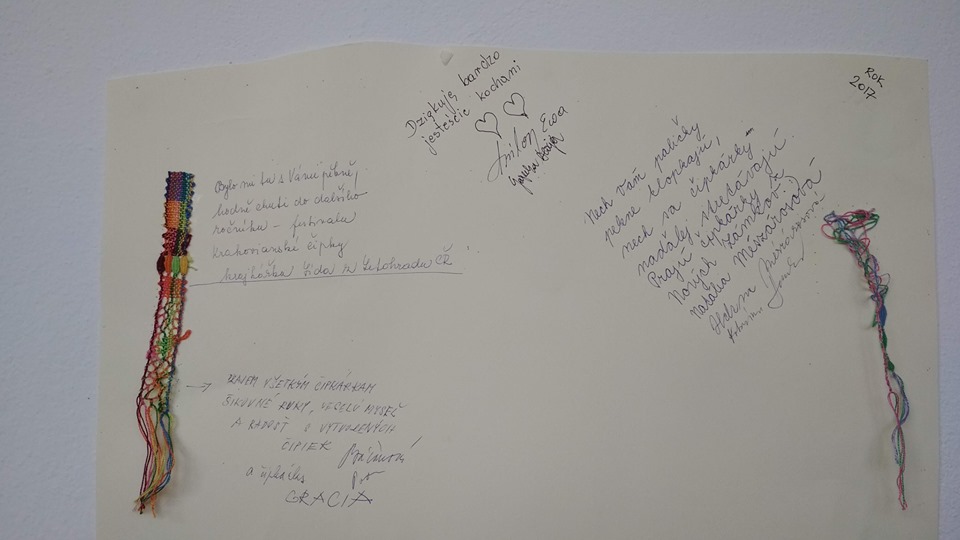 Dziąkuję bardzo
jesteście kochani
Ewa
ROK
2017
Bylo mi tu s Vámi pěkně,
hodně chuti do dalšího
ročníku - festivalu
Krakovianské čipky
krajkářka Lída z Letohradu ČR
Nech Vám paličky
pekne klopkajú,
nech sa čipkárky
naďalej stretávajú
Prajú čipkárky z
Nových Zámkov
Natália Mészárosová
PRAJEM VŠETKÝM ČIPKÁRKAM
ŠIKOVNÉ RUKY, VESELÚ MYSEĽ
A RADOSŤ Z VYTVORENÝCH
ČIPIEK
a
GRACIA